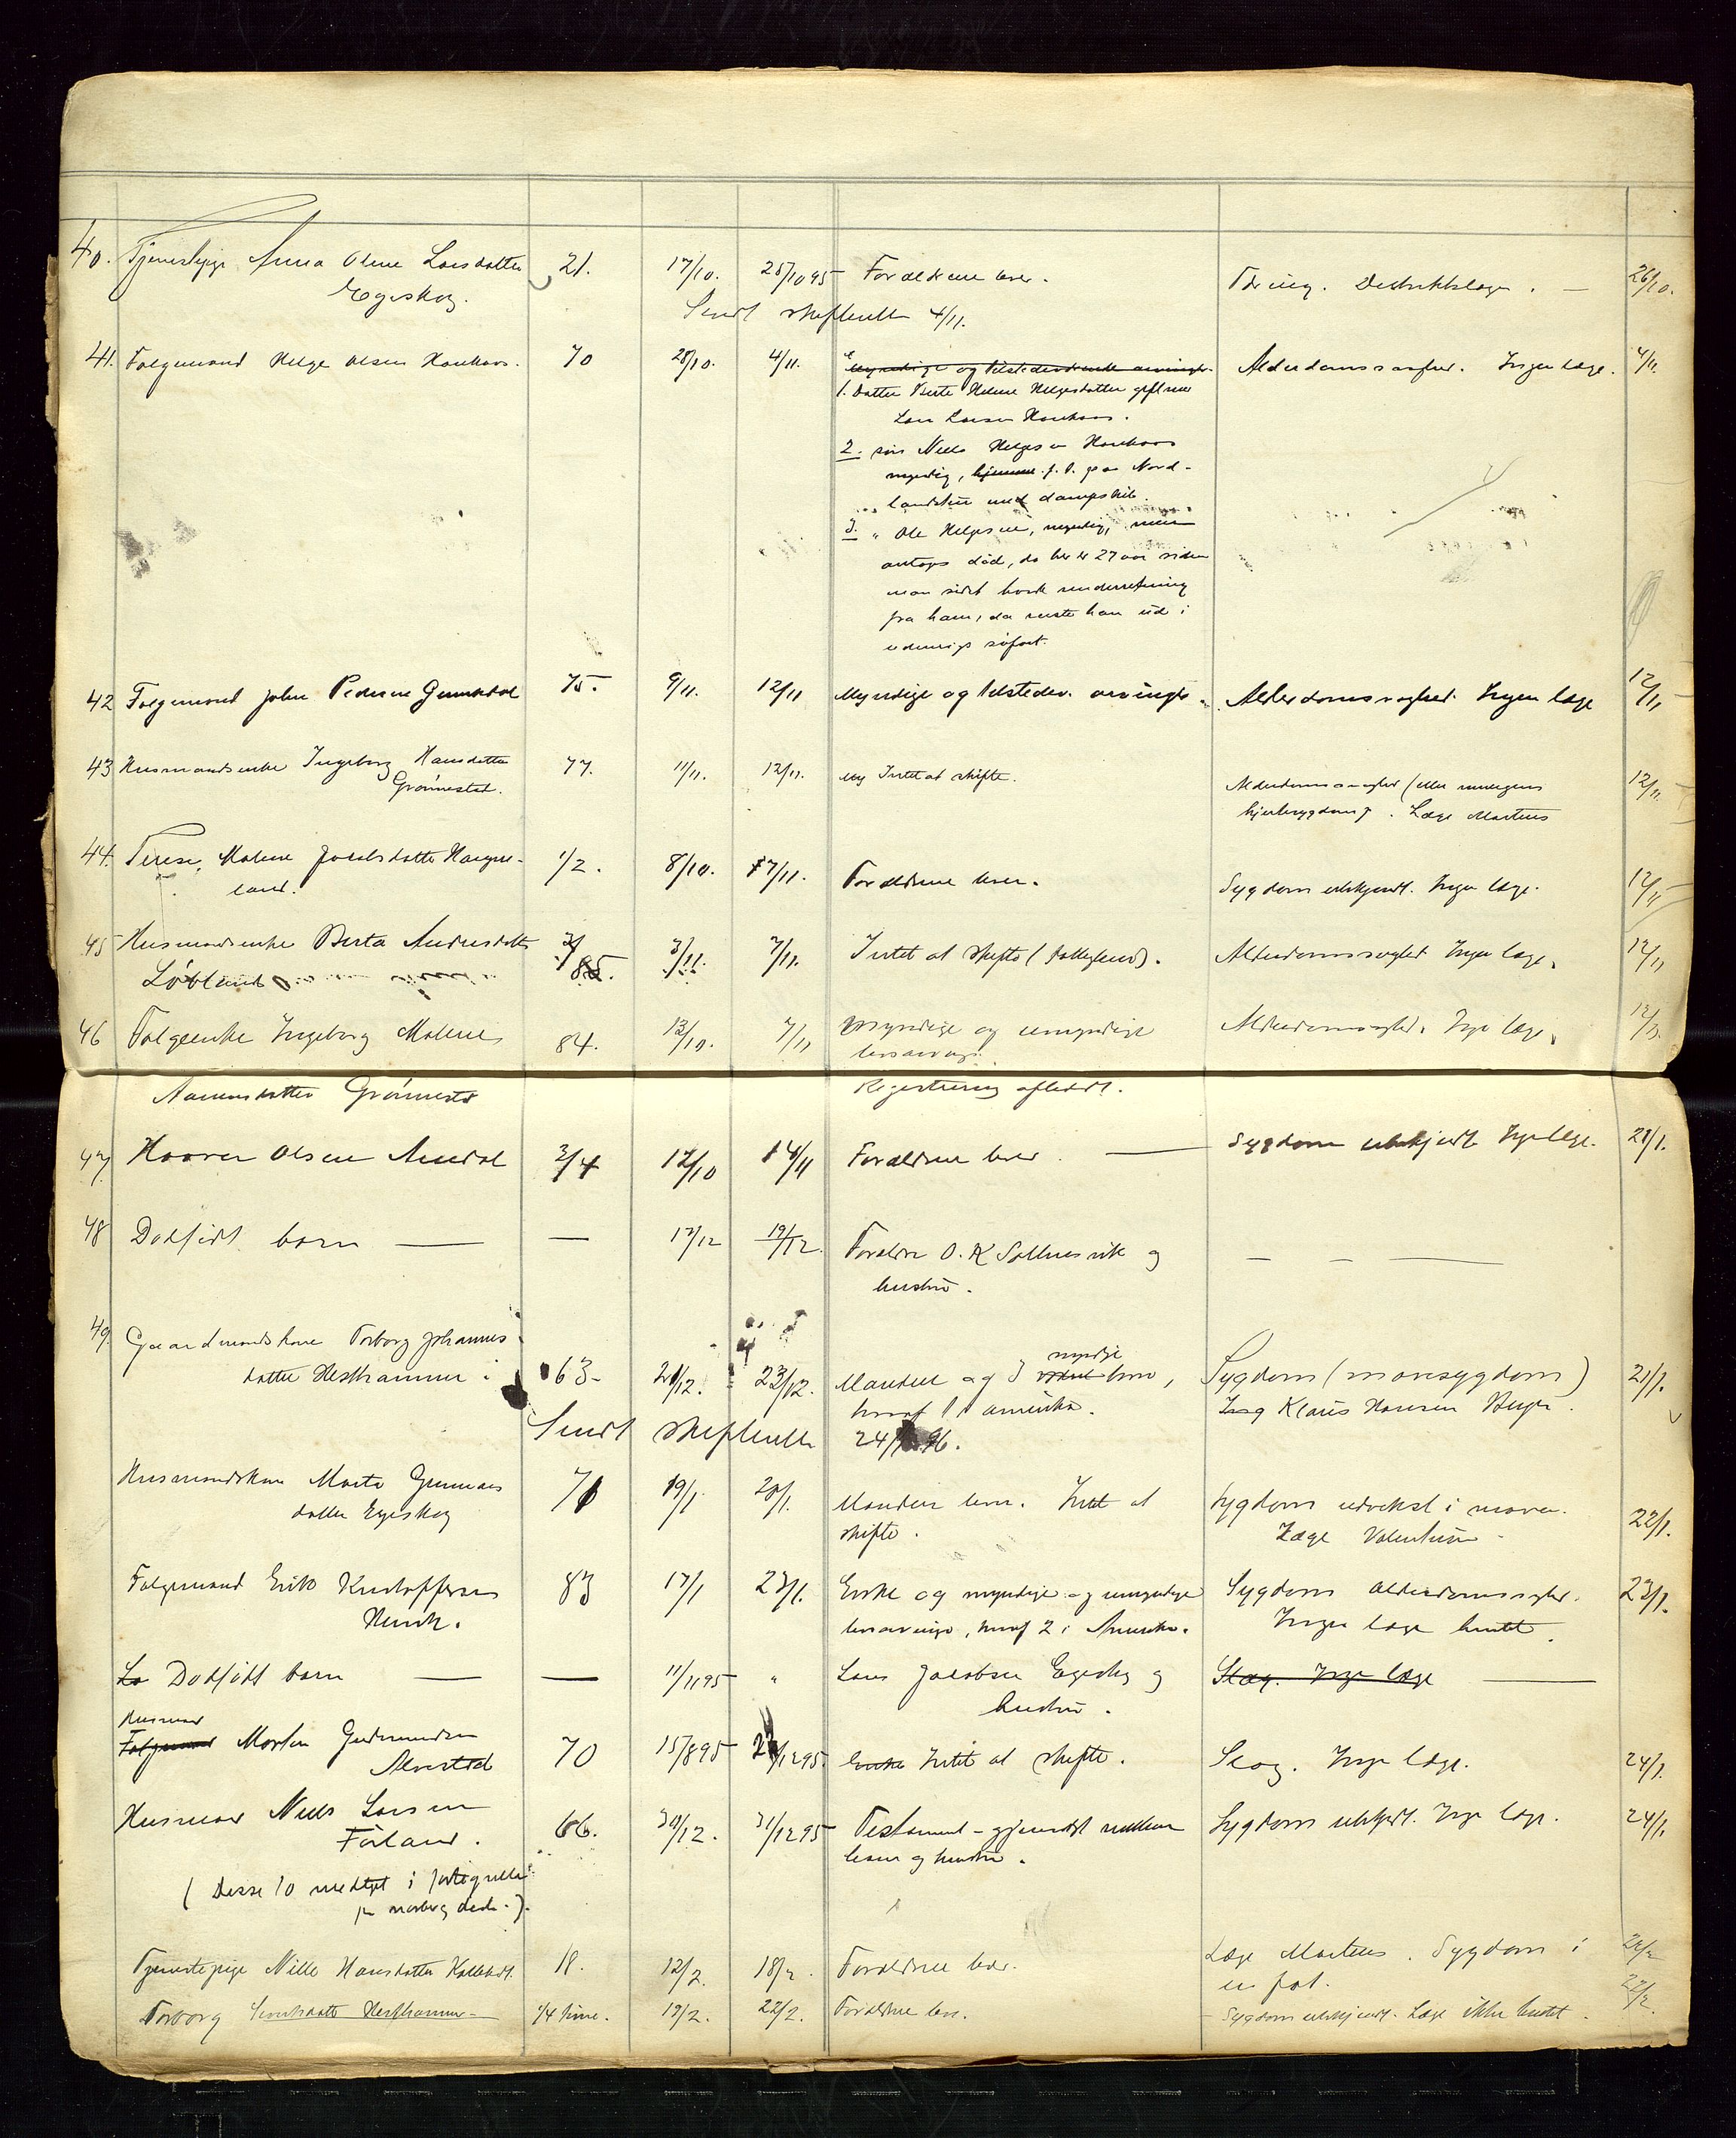 40. Tjenestepige Anna Oline Larsdatter 21. 17/10. 25/10 95 Forældrene lever. Tæring. Distriktslæge. — 26/10.
Egeskog.
Sendt skifteretten 4/11.
41. Folgemand Helge Olsen Haukaas. 70 28/10. 4/11. Myndige og tilstedeværende arvinger. Alderdomssvaghed. Ingen læge. 4/11.
1. Datter Berte Helene Helgesdatter gift med
Lars Larsen Haukaas.
2. søn Nils Helgesen Haukaas
myndig, hjemme f. t. paa Nord-
landstur med dampskib.
3. " Ole Helgesen, myndig, men
antages død, da her er 27 aar siden
man sidst havde underretning
fra ham, da reiste han ud i
udenrigs søfart.
42 Folgemand John Pedersen 75. 9/11. 12/11 Myndige og tilstedev. arvinger. Alderdomssvaghed. Ingen læge 12/11
43 Husmandsenke Ingeborg Hansdatter 77. 11/11. 12/11. Intet at skifte. Alderdomssvaghed (eller muligens 12/11.
Grønnestad. hjertesygdom). Læge Martens
44. Terese Malene Jacobsdatter Haugse- 1/2. 8/10. 7/11. Forældrene lever. Sygdom ubekjendt. Ingen læge. 12/11
land.
45 Husmandsenke Berta Andersdatter 85. 3/11. 7/11. Intet at skifte (fattiglem). Alderdomssvaghed Ingen læge. 12/11
Løvland
46 Folgeenke Ingeborg Malene 84. 13/10. 7/11 Myndige og umyndige Alderdomssvaghed. Ingen læge. 12/11.
livsarvinger.
Grønnestad Registrering afholdt.
47. Haaver Olsen 3/4 12/10 14/11 Forældrene lever. — Sygdom ubekjendt Ingen læge. 21/1.
48 Dødfødt barn — — 17/12 19/12. Forældre O. K. og — — —
hustru.
49. Gaardmandskone Torborg Johannes-
datter Hesthammer 63- 21/12. 23/12. Manden og 3 myndige børn, Sygdom (mavesygdom) 21/1.
hvoraf 1 i amerika. Klaus Hansen Bergen.
Sendt skifteretten 24/1 96.
Husmandskone Marta Gunnars 71 19/1 20/1. Manden lever. Intet at Sygdom udvekst i maven. 22/1.
datter Egeskog skifte. Læge Valentin
Folgemand Erik Kristoffersen 83 17/1 23/1. Enke og myndige og umyndige Sygdom Alderdomssvaghed. 23/1.
livsarvinger, hvoraf 2 i Amerika. Ingen læge hentet.
La Dødfødt barn — — 11/11 95 " Lars Jacobsen Egeskog og Slag. Ingen læge —
hustru.
Husmand
Folgemand Morten Gudmundsen 70 15/8 95 /12 95. Enke Intet at skifte. Slag. Ingen læge. 24/1.
Husmand Nils Larsen 66. 30/12. 31/12 95 Testament — gjensidigt mellem Sygdom ubekjendt. Ingen læge. 24/1.
Førland. ham og hustru.
(Disse 10 medtaget i fortegnelse
)
Tjenestepige Nille Hansdatter 18. 12/2. 18/2. Forældrene lever. Læge Martens. Sygdom i 22/2
en fot.
Torborg Hesthammer 1/4 time. 19/2. 22/2. Forældrene lever. Sygdom ubekjendt. Læge ikke hentet. 22/2.